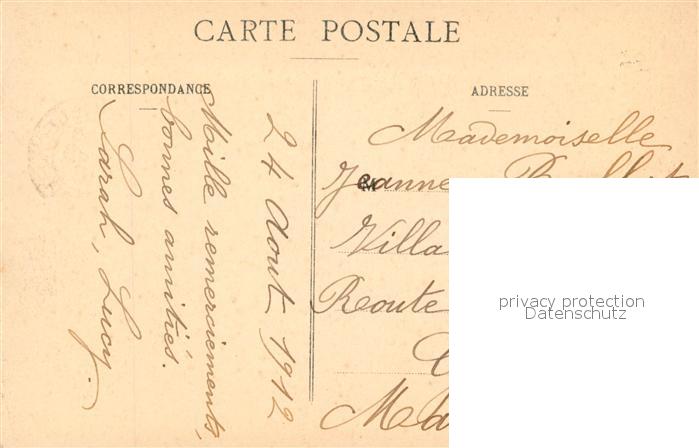 CARTE POSTALE
CORRESPONDANCE
ADRESSE
24 Aout 1912
Mille remerciements,
bonnes amitiés.
Sarah, Lucy.
Mademoiselle
Jeanne
M
Villa
Route
privacy protection
Datenschutz